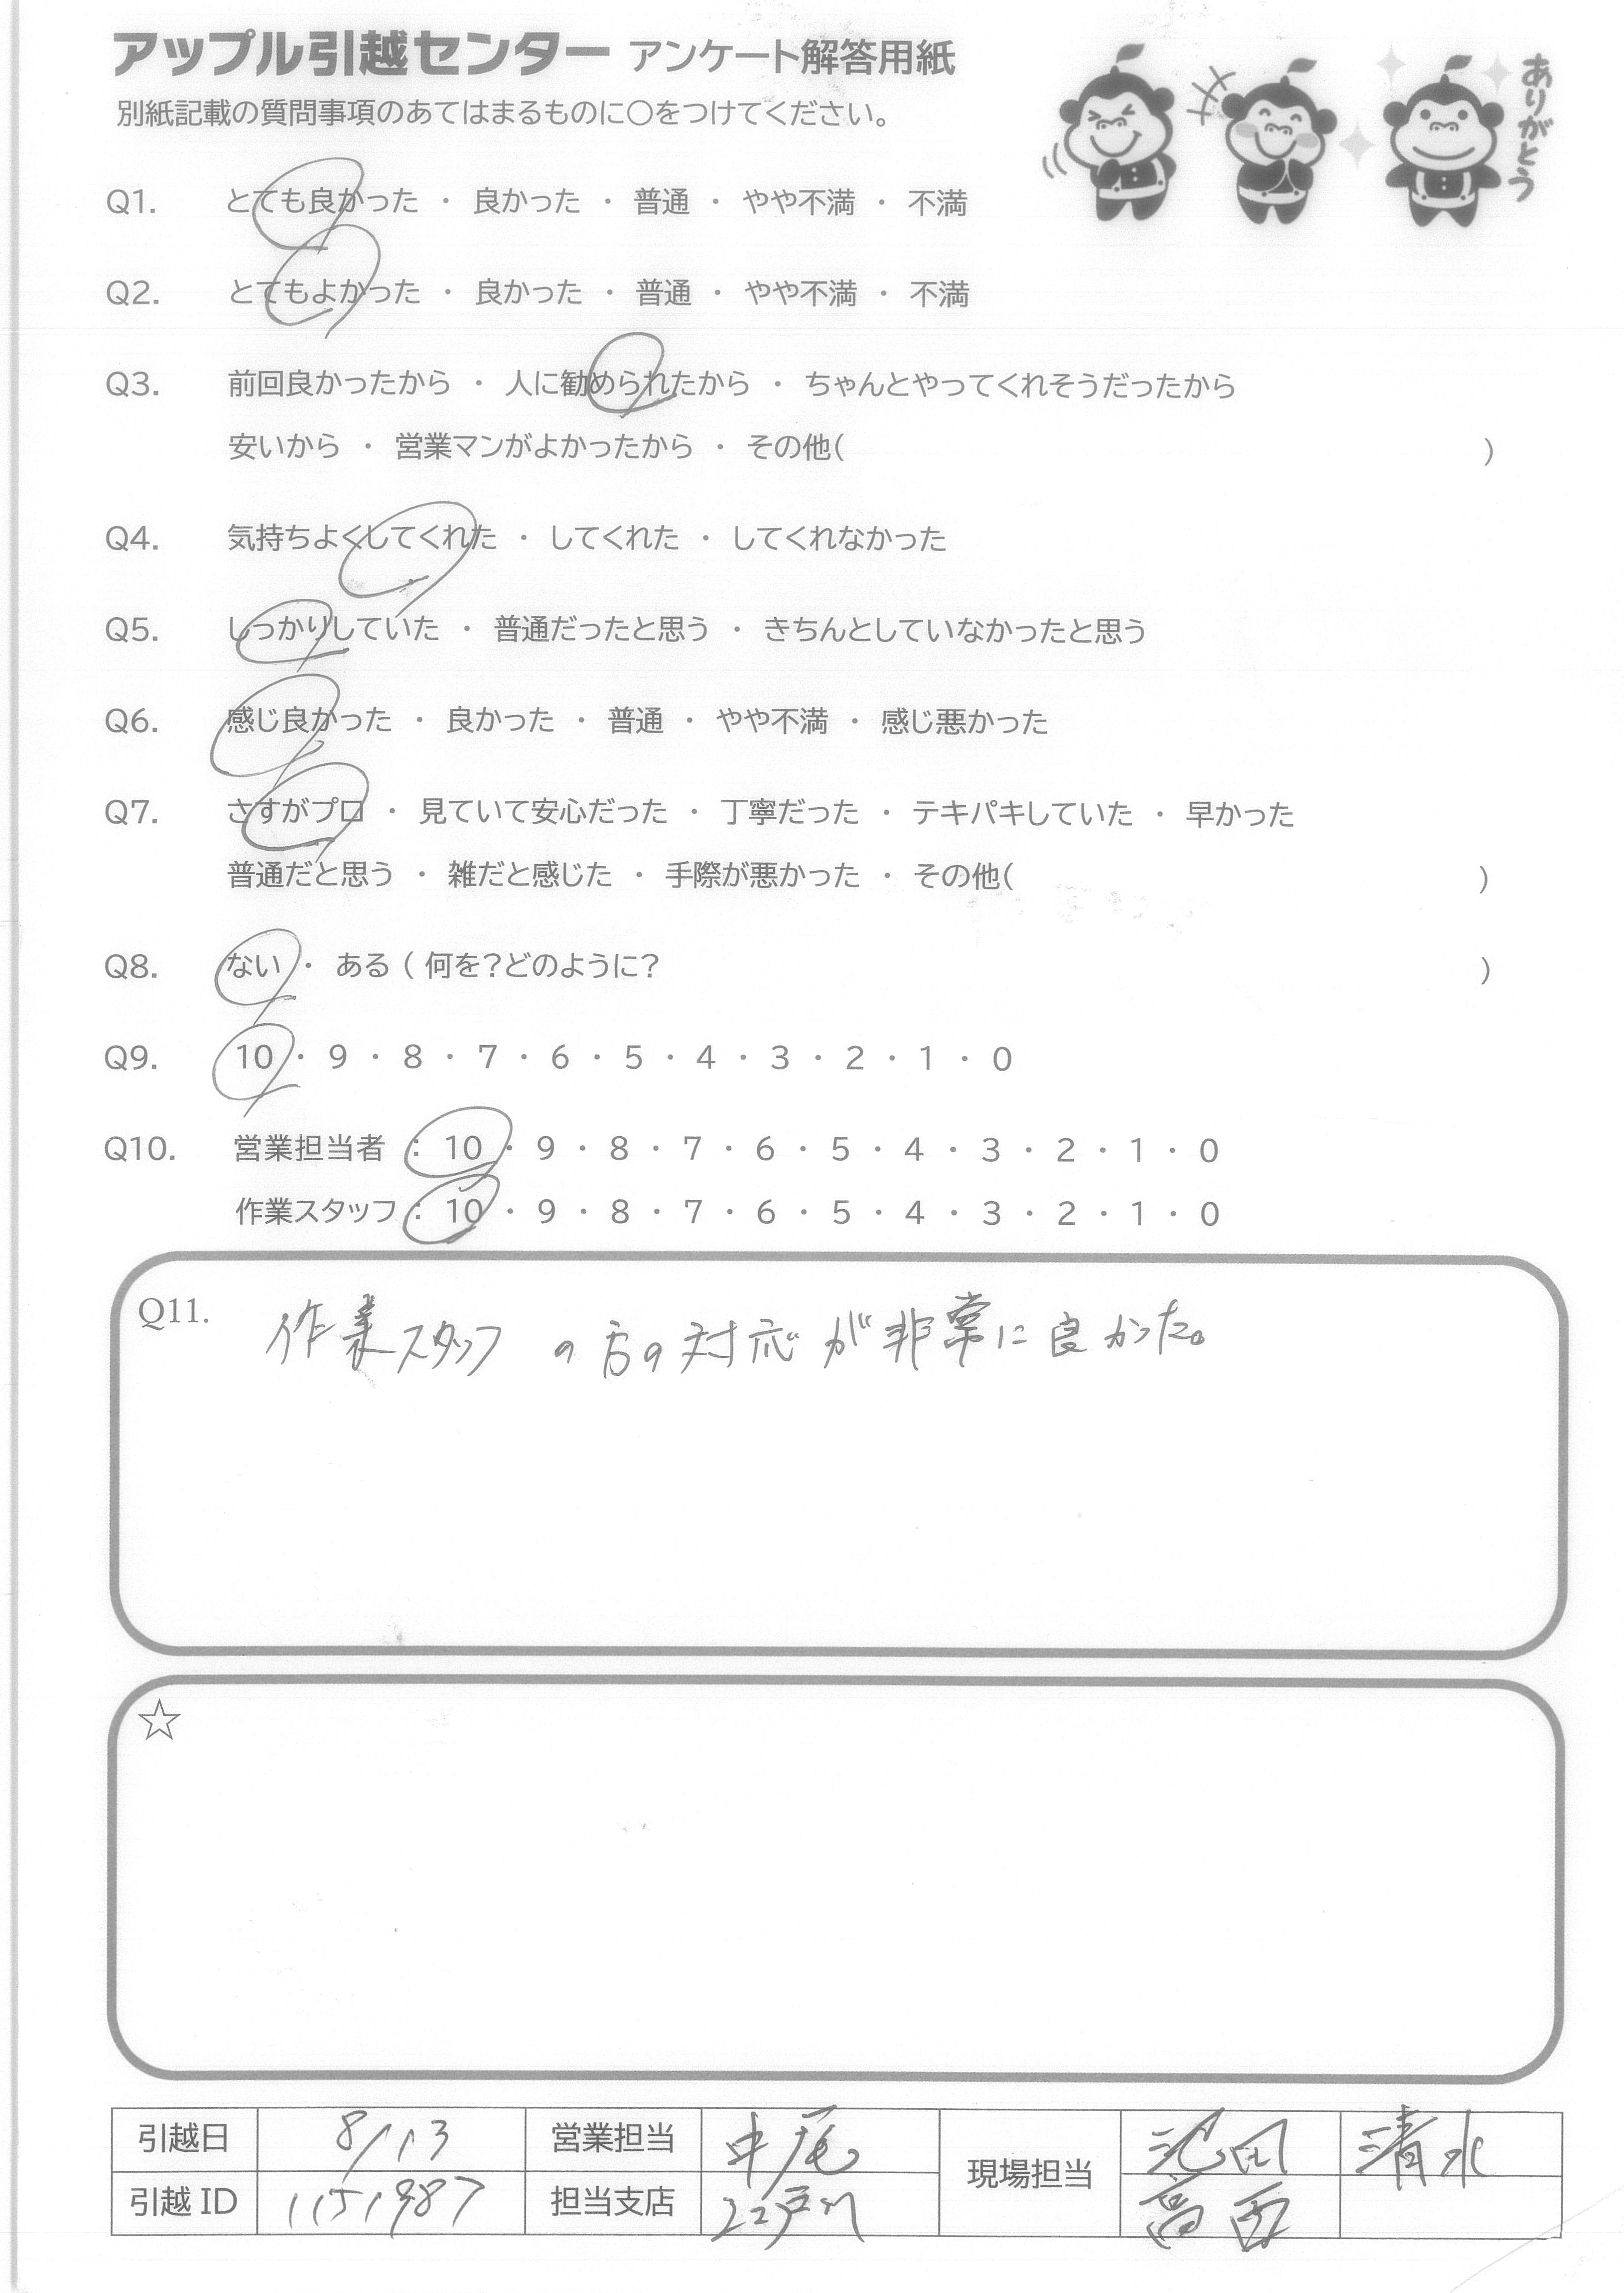 アップル引越センター アンケート解答用紙
別紙記載の質問事項のあてはまるものに○をつけてください。
ありがとう
Q1. とても良かった ・ 良かった ・ 普通 ・ やや不満 ・ 不満
Q2. とてもよかった ・ 良かった ・ 普通 ・ やや不満 ・ 不満
Q3. 前回良かったから ・ 人に勧められたから ・ ちゃんとやってくれそうだったから
安いから ・ 営業マンがよかったから ・ その他( )
Q4. 気持ちよくしてくれた ・ してくれた ・ してくれなかった
Q5. しっかりしていた ・ 普通だったと思う ・ きちんとしていなかったと思う
Q6. 感じ良かった ・ 良かった ・ 普通 ・ やや不満 ・ 感じ悪かった
Q7. さすがプロ ・ 見ていて安心だった ・ 丁寧だった ・ テキパキしていた ・ 早かった
普通だと思う ・ 雑だと感じた ・ 手際が悪かった ・ その他( )
Q8. ない ・ ある ( 何を?どのように? )
Q9. 10 ・ 9 ・ 8 ・ 7 ・ 6 ・ 5 ・ 4 ・ 3 ・ 2 ・ 1 ・ 0
Q10. 営業担当者 : 10 ・ 9 ・ 8 ・ 7 ・ 6 ・ 5 ・ 4 ・ 3 ・ 2 ・ 1 ・ 0
作業スタッフ : 10 ・ 9 ・ 8 ・ 7 ・ 6 ・ 5 ・ 4 ・ 3 ・ 2 ・ 1 ・ 0
Q11. 作業スタッフの方の対応が非常に良かった。
☆
引越日 8/13 営業担当 中尾 現場担当 池田 清水
引越ID 1151987 担当支店 江戸川 高西